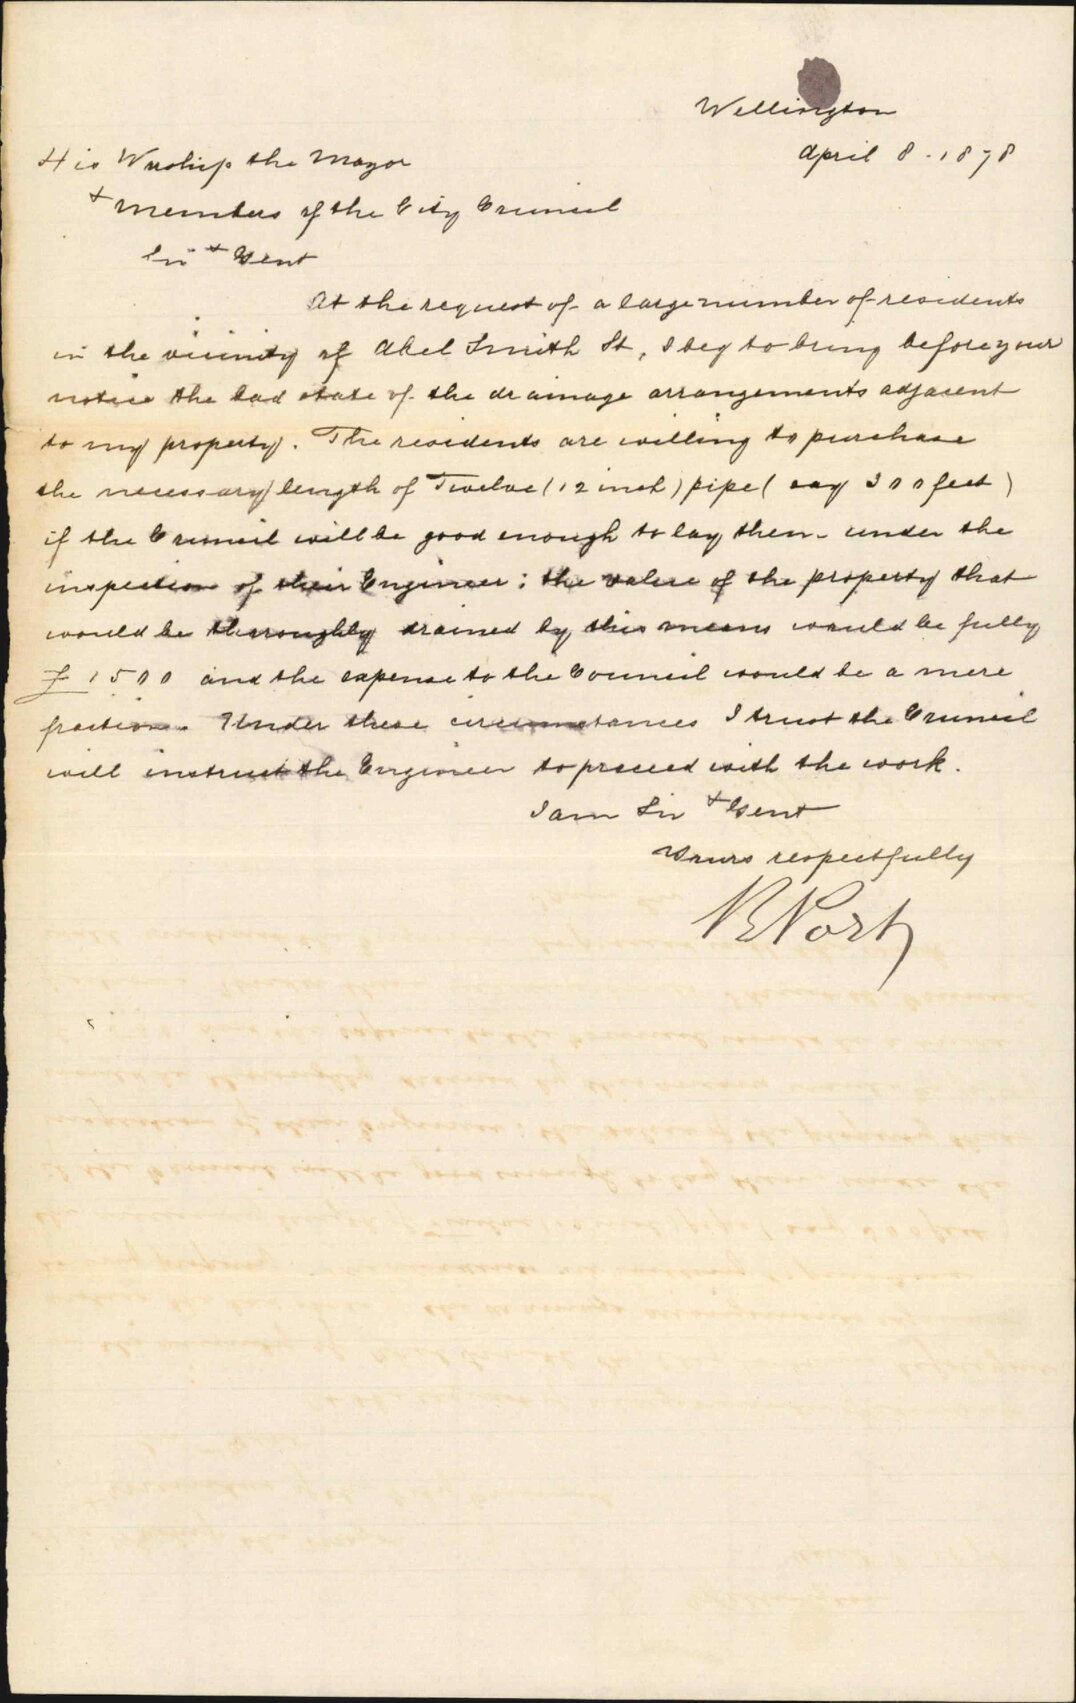 Wellington
April 8 - 1878
His Worship the Mayor
+ Members of the City Council
Sir + Gent
At the request of a large number of residents
in the vicinity of Abel Smith St, I beg to bring before your
notice the bad state of the drainage arrangements adjacent
to my property. The residents are willing to purchase
the necessary length of Twelve (12 inch) pipe (say 300 feet)
if the Council will be good enough to lay them - under the
inspection of their Engineer; the value of the property that
would be thoroughly drained by this means would be fully
£1500 and the expense to the Council would be a mere
fraction. Under these circumstances I trust the Council
will instruct the Engineer to proceed with the work.
I am Sir + Gent
Yours respectfully